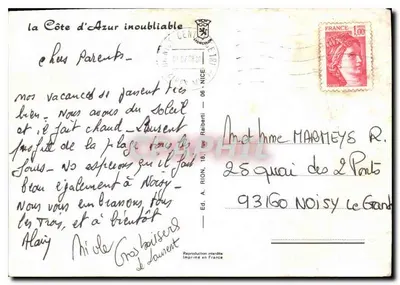 la Côte d'Azur inoubliable
Chers Parents -
nos vacances se passent très
bien - Nous avons du soleil
et il fait chaud - Laurent
profite de la plage tous les
jours - Nous espérons qu'il fait
beau également à Noisy -
Nous vous embrassons, tous
les Trois, et à bientôt
Alain
Nicole
Gros baisers
de Laurent
Ed. A. RION, 18, rue Raiberti - 06 - NICE
Reproduction interdite
Imprimé en France
FRANCE
1,00
Mr et Mme MARMEYS R.
25 quai des 2 Ponts
93160 NOISY le Grand
CPHIL